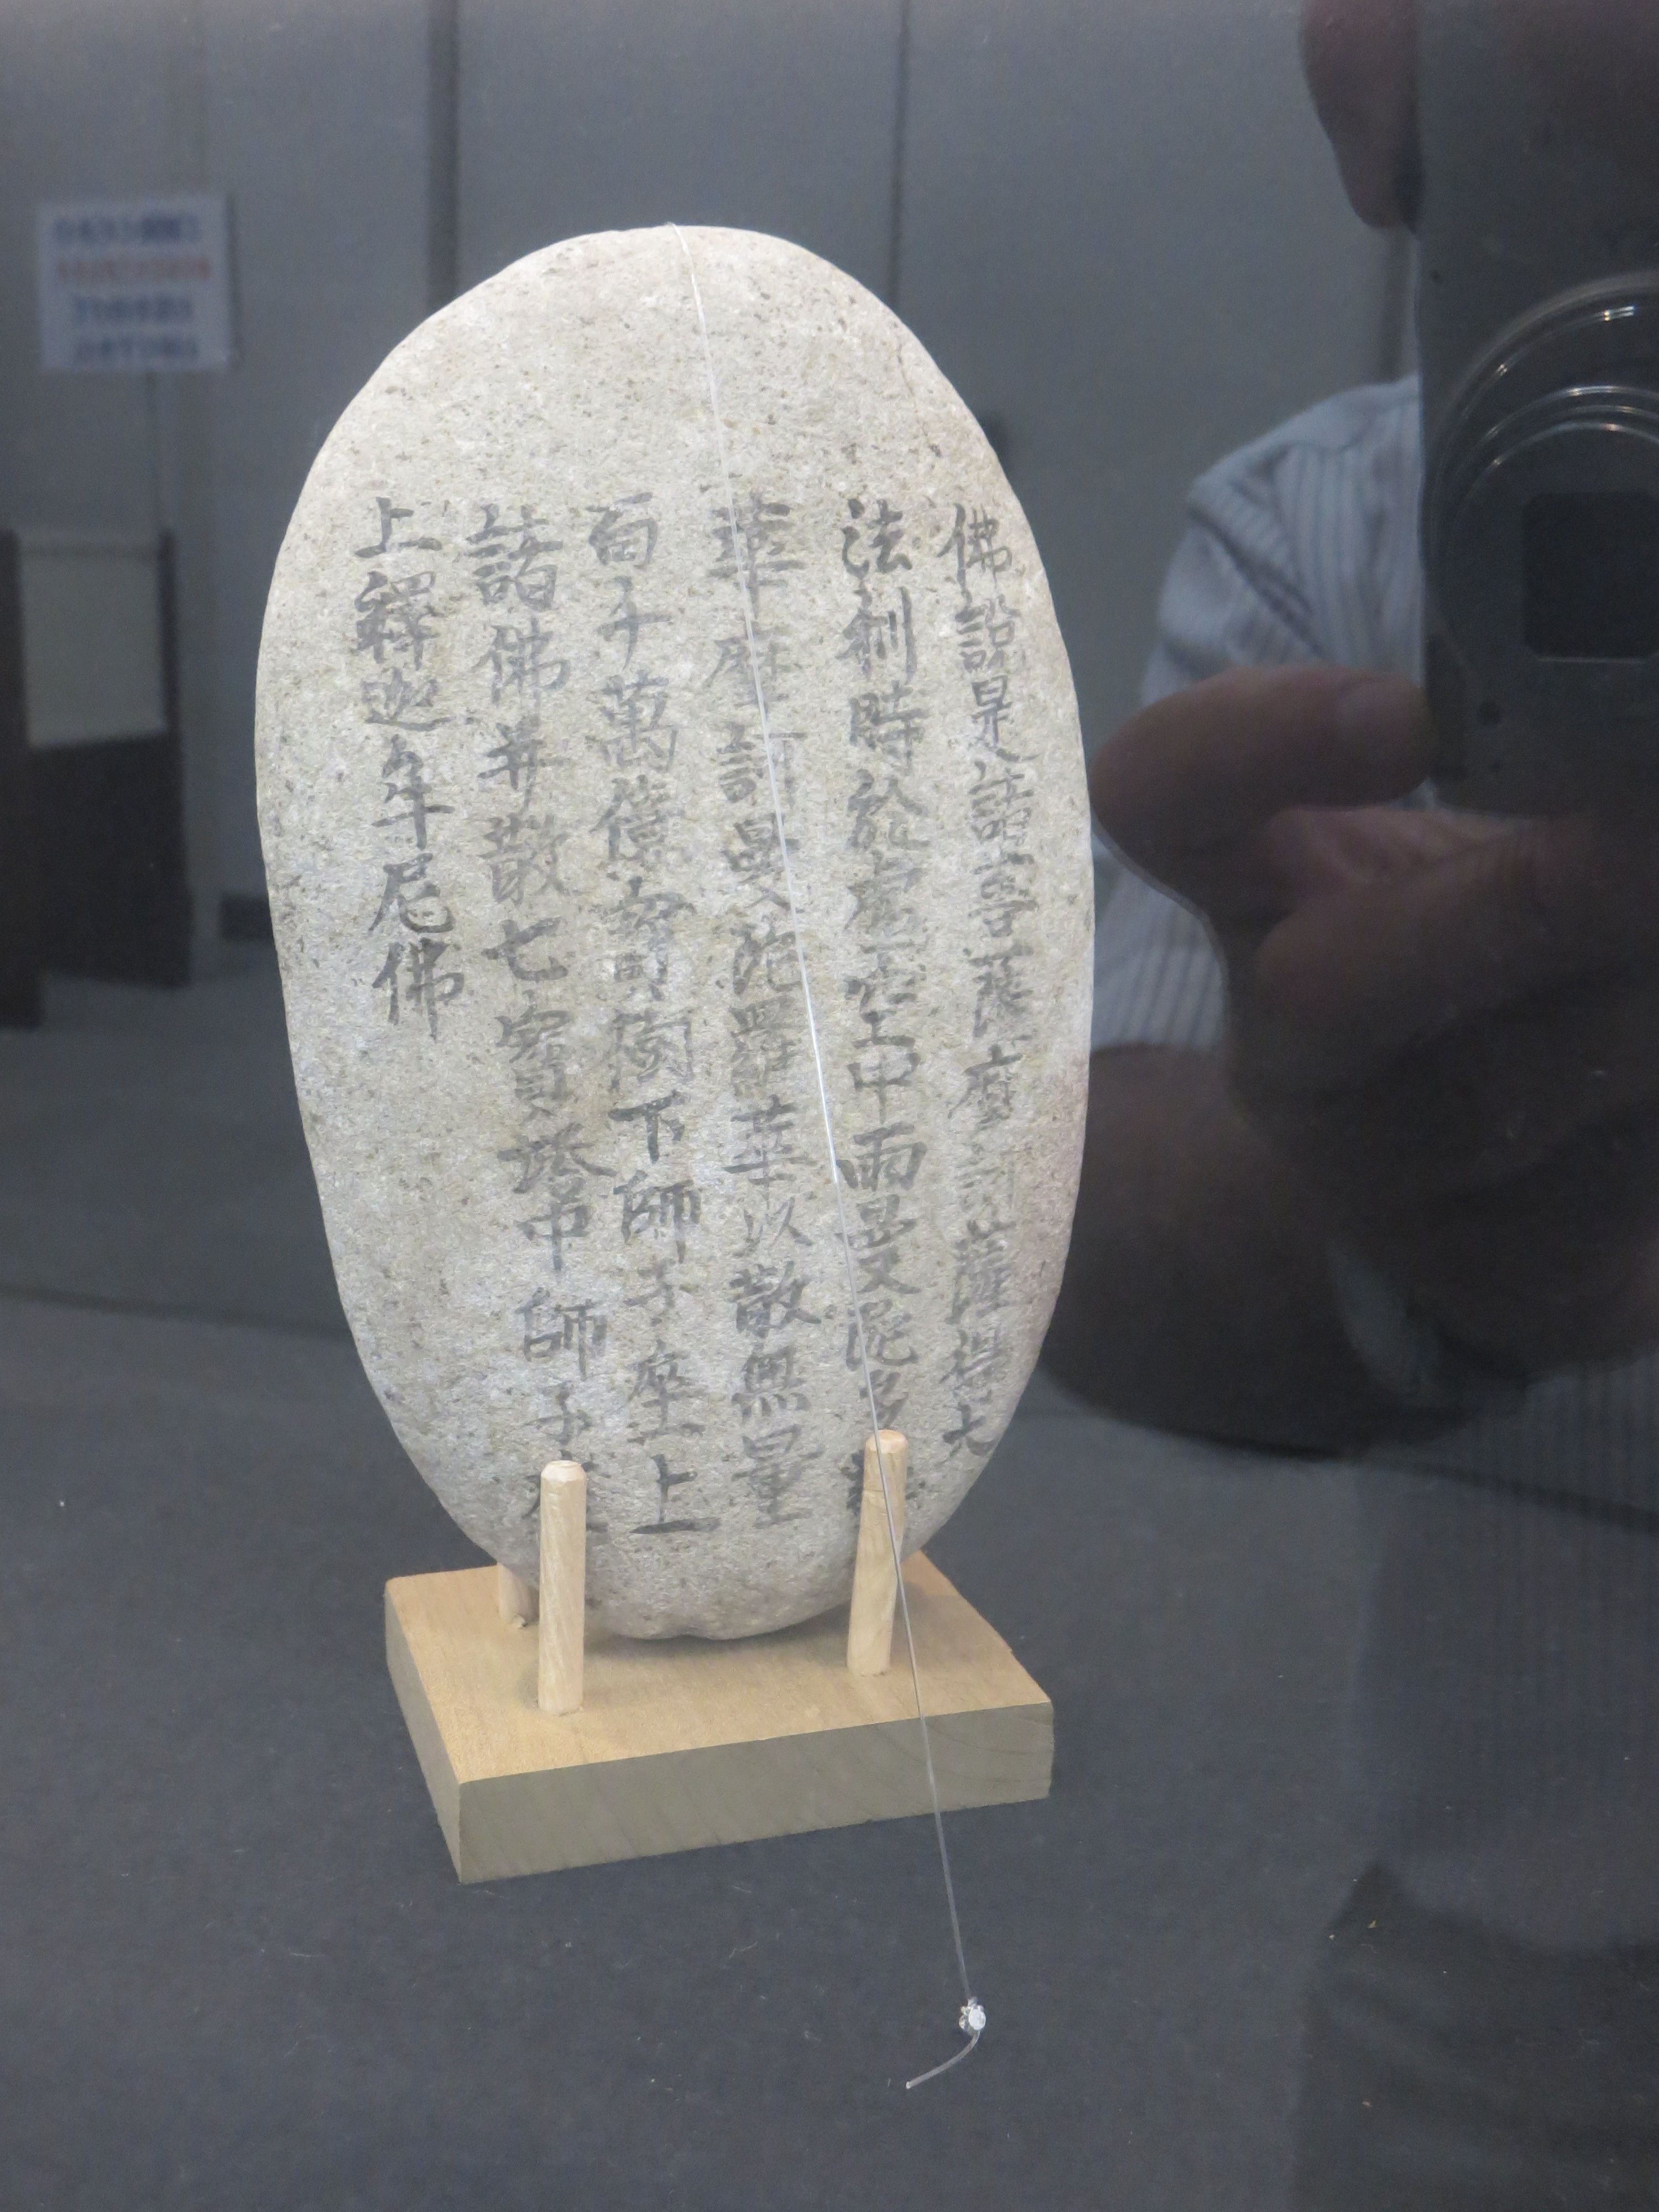 佛說是諸菩薩摩訶薩得大
法利時於虛空中雨曼陀
華摩訶曼陀羅華以散無量
百千萬億寶樹下師子座上
諸佛并散七寶塔中師子座
上釋迦牟尼佛